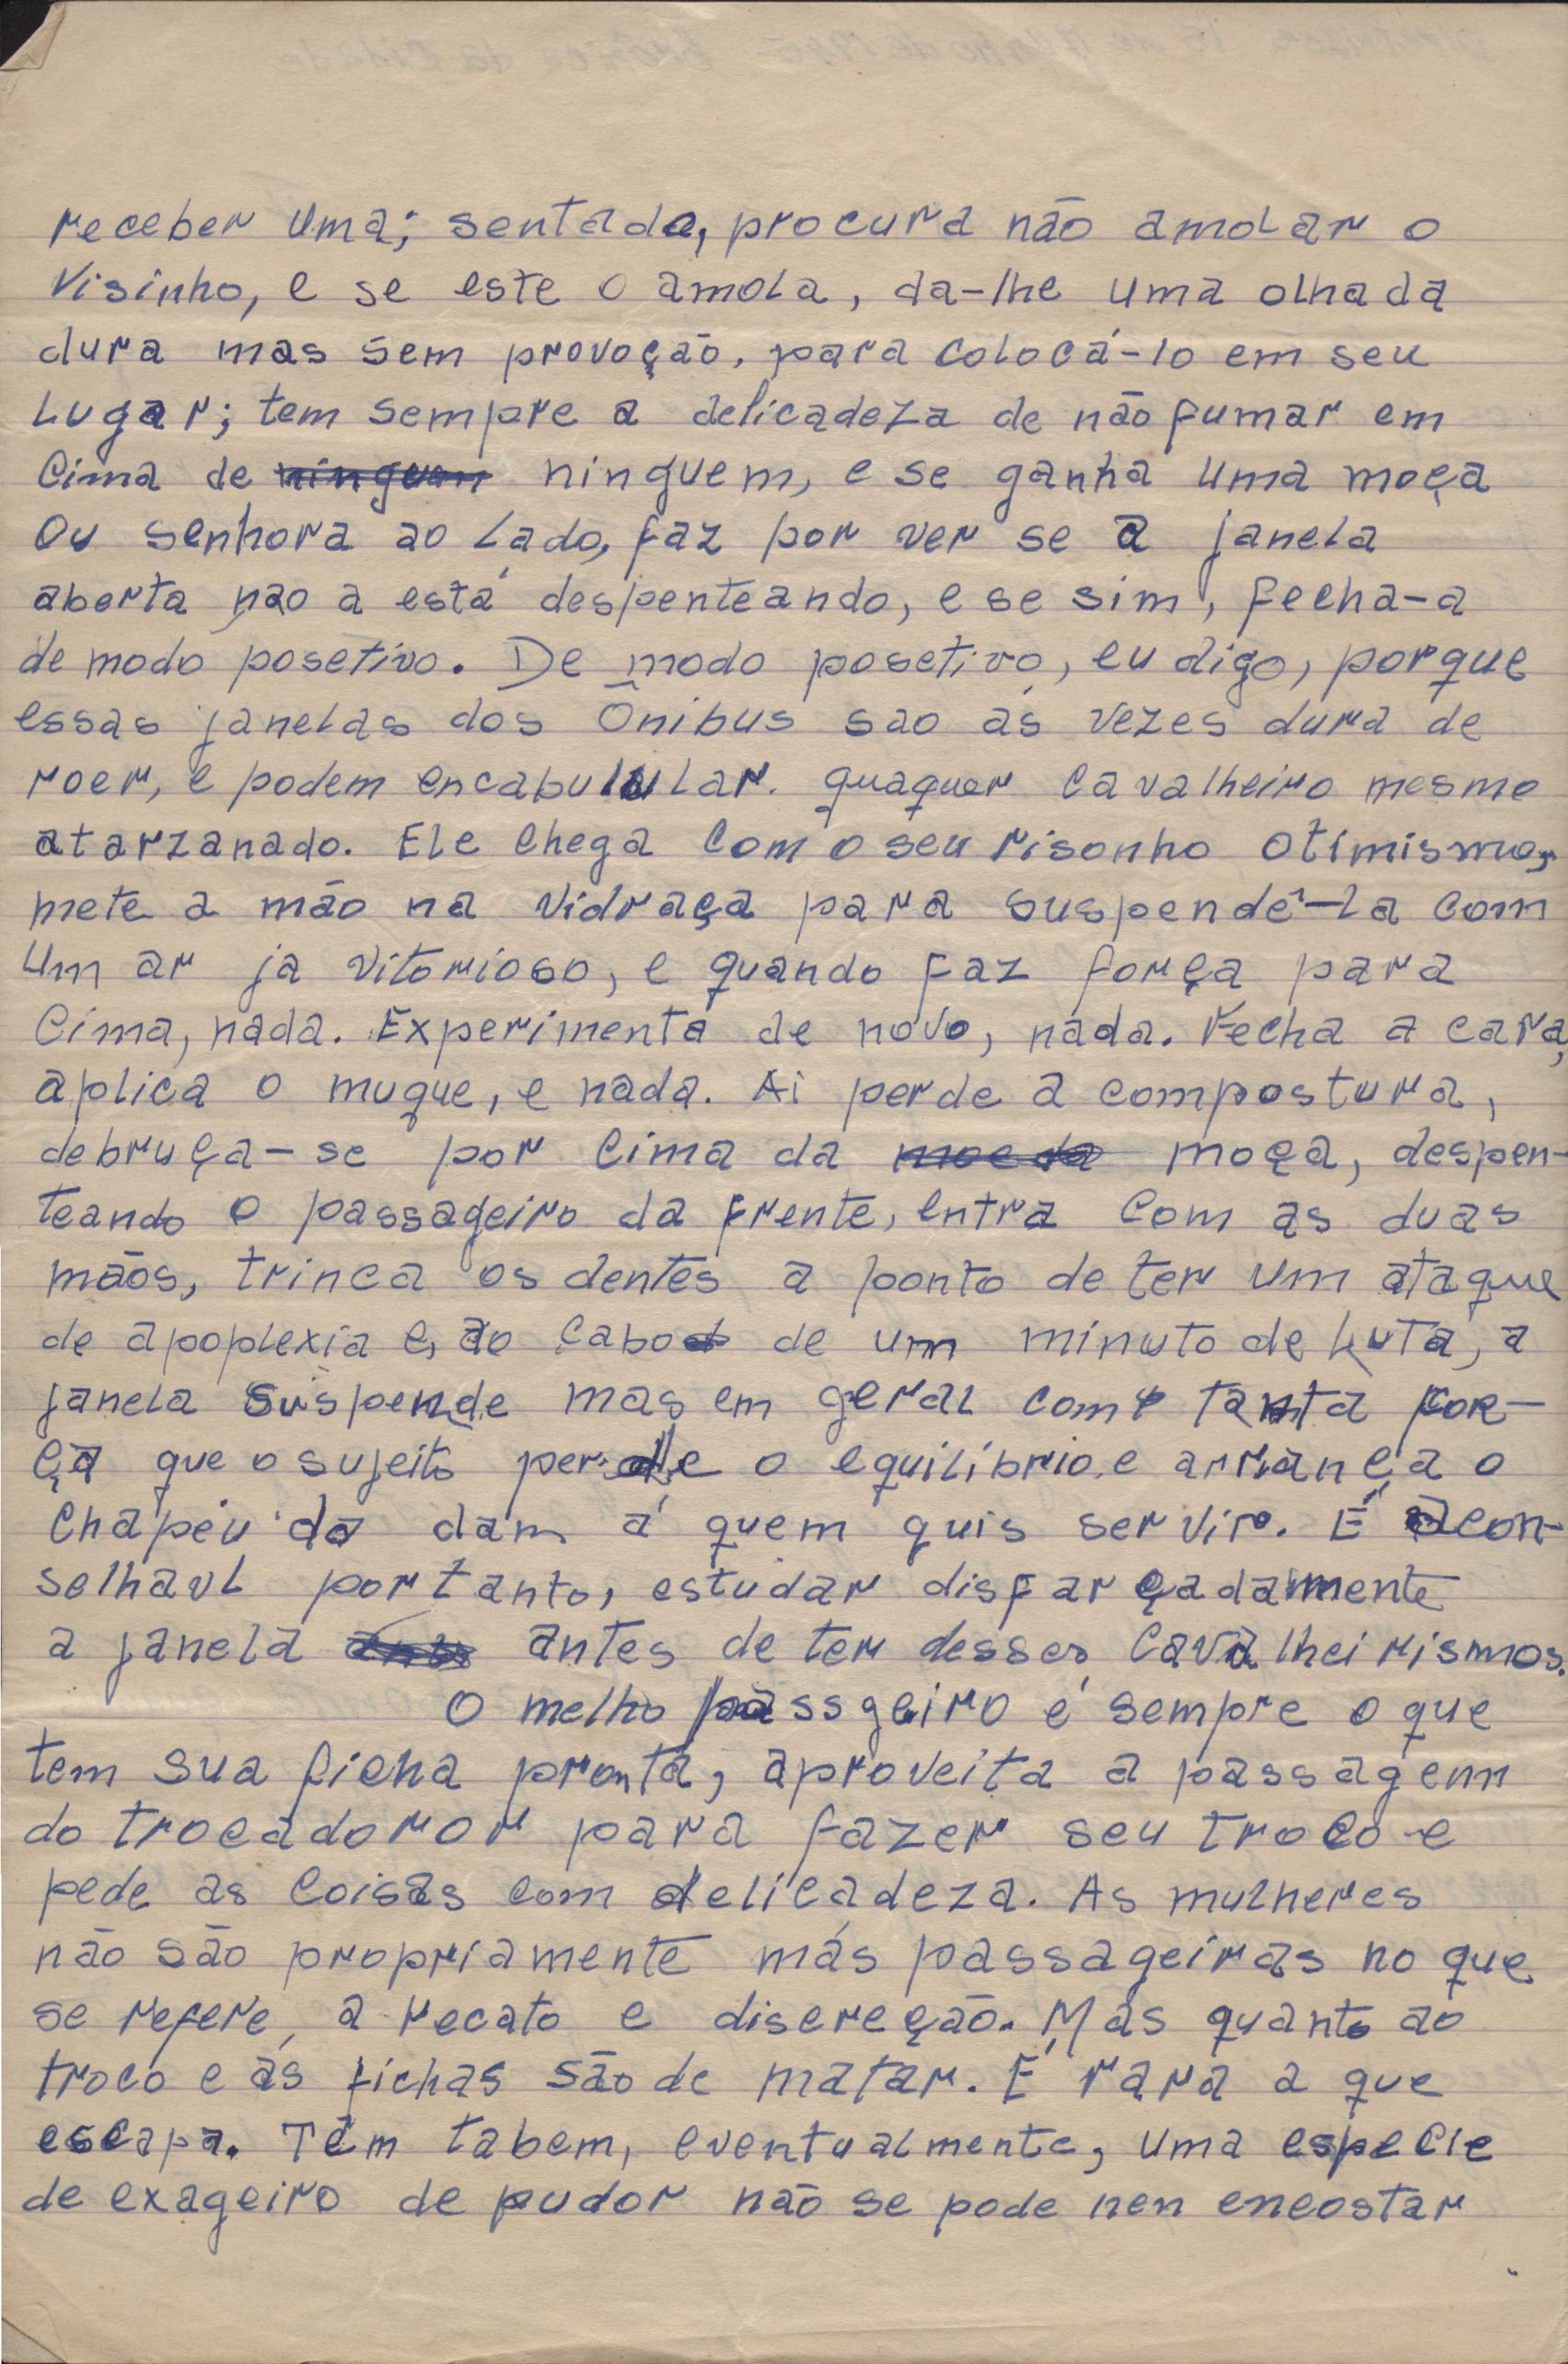 receber uma; sentado, procura não amolar o
visinho, e se este o amola, da-lhe uma olhada
dura mas sem provoção, para colocá-lo em seu
lugar; tem sempre a delicadeza de não fumar em
cima de ninguem, e se ganha uma moça
ou senhora ao lado, faz por ver se a janela
aberta nao a está despenteando, e se sim, fecha-a
de modo posetivo. De modo posetivo, eu digo, porque
essas janelas dos Ônibus sao ás vezes dura de
roer, e podem encabulular. quaquer cavalheiro mesmo
atarzanado. Ele chega com o seu risonho otimismo,
mete a mão na vidraça para suspendê-la com
um ar ja vitorioso, e quando faz força para
cima, nada. Experimenta de novo, nada. Fecha a cara,
aplica o muque, e nada. Ai perde a compostura,
debruça-se por cima da moça, despen-
teando o passageiro da frente, entra com as duas
mãos, trinca os dentes a ponto de ter um ataque
de apoplexia e, ao cabo de um minuto de luta, a
janela suspende mas em geral com tanta for-
ça que o sujeito perde o equilíbrio e arrança o
chapéu da dam á quem quis servir. É acon-
selhavl portanto, estudar disfarçadamente
a janela antes de ter desses cavalheirismos.
O melho passgeiro é sempre o que
tem sua ficha pronta, aproveita a passagem
do trocadoror para fazer seu troco e
pede as coisas com delicadeza. As mulheres
não são propriamente más passageiras no que
se refere, a recato e discreção. Mas quanto ao
troco e ás fichas são de matar. É rara a que
escapa. Têm tabem, eventualmente, uma especie
de exageiro de pudor não se pode nen encostar